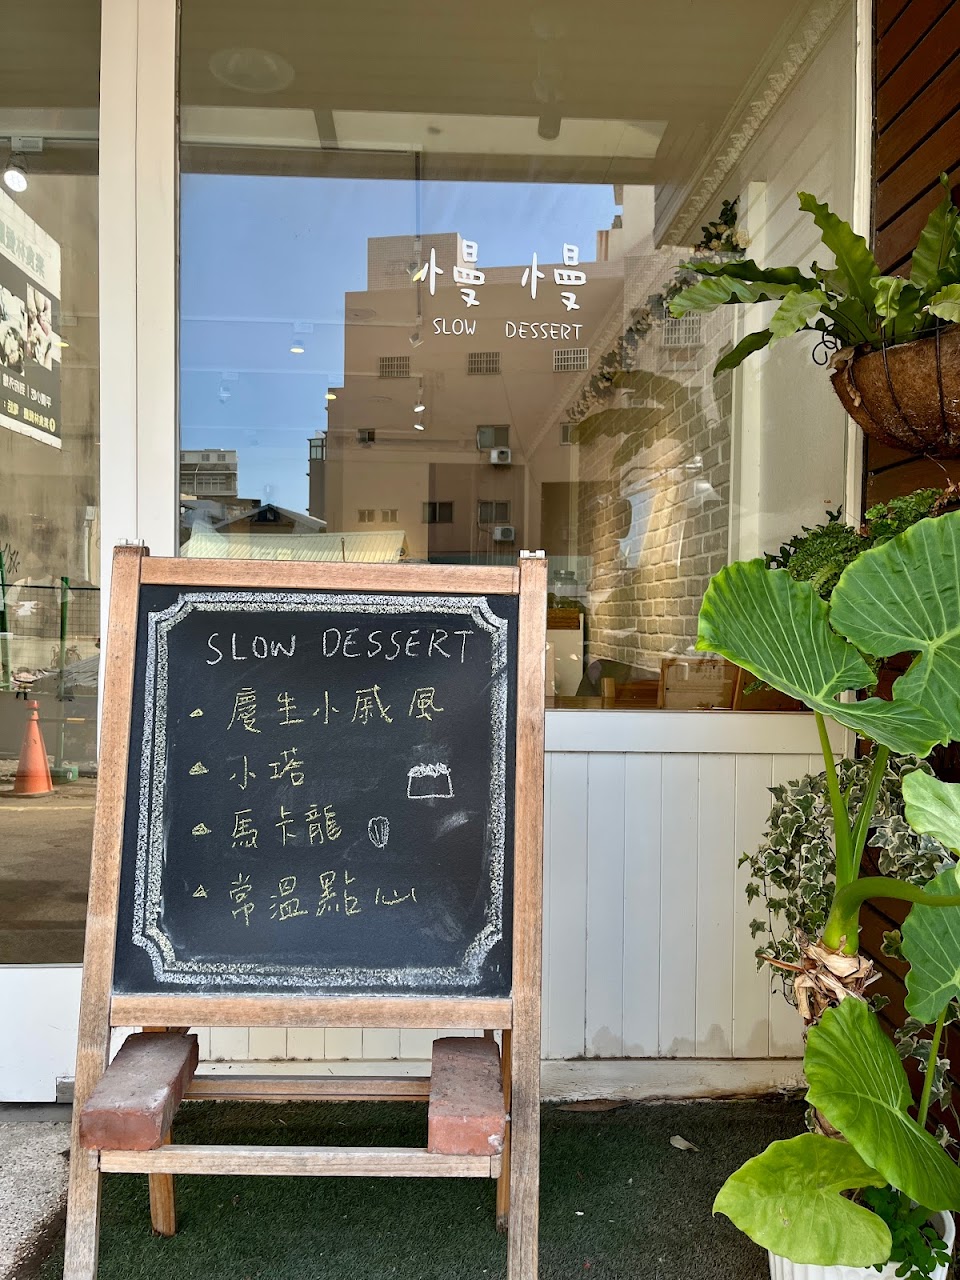 慢慢
SLOW DESSERT
SLOW DESSERT
慶生小戚風
小塔
馬卡龍
常溫點心